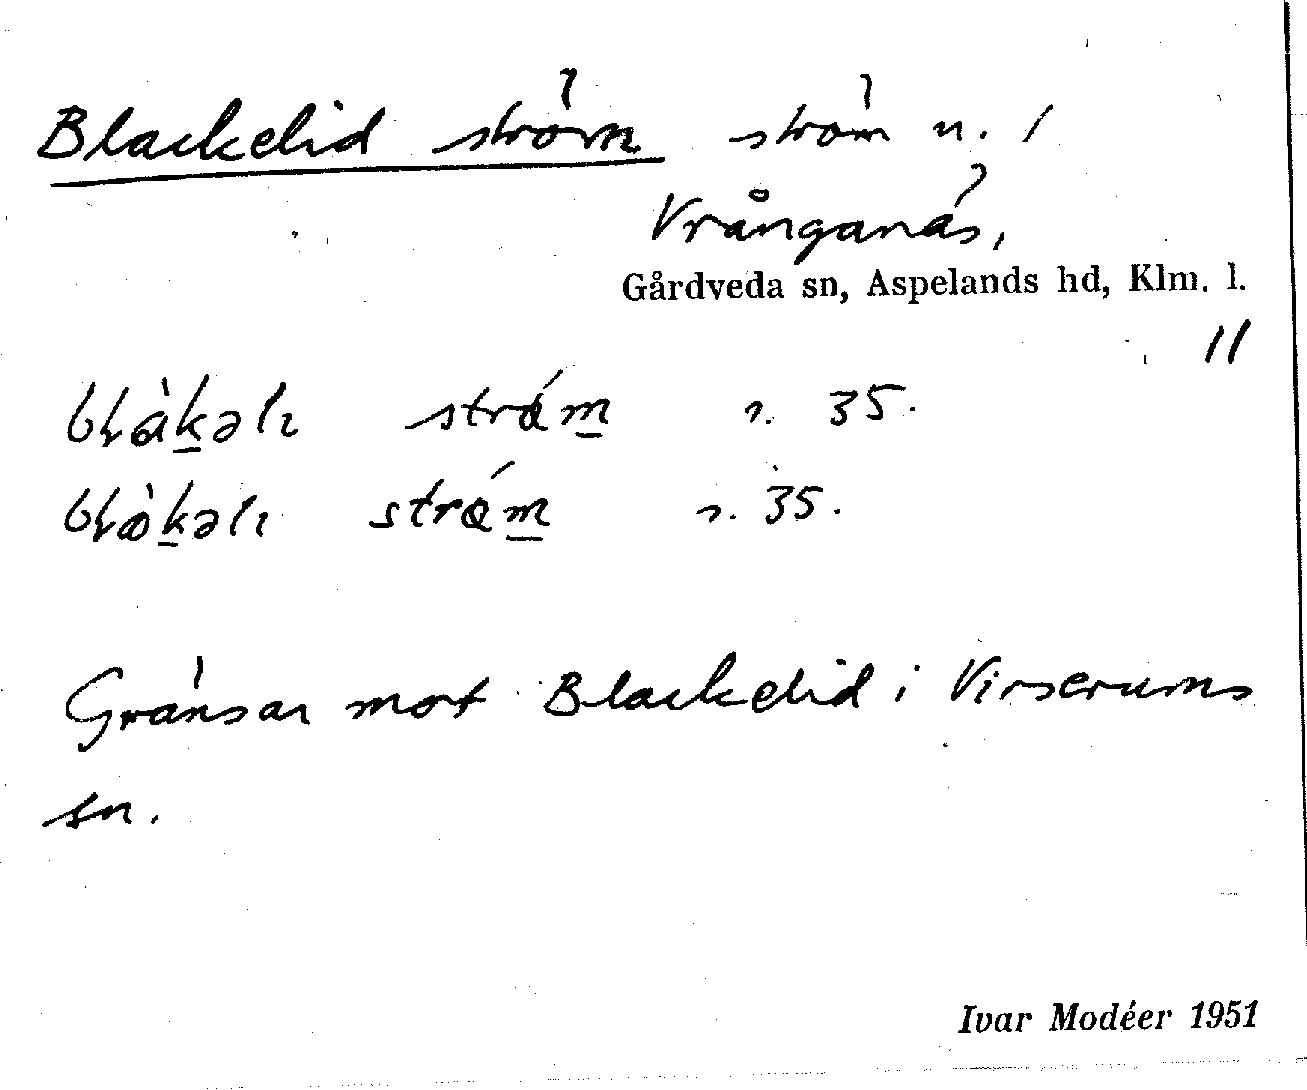 Blackelid ström ström n. /
Vrånganäs,
Gårdveda sn, Aspelands hd, Klm. l.
11
blàkəlı strǿm n. 35.
blòkəlı strǿm n. 35.
Gränsar mot Blackelid i Virserums
sn.
Ivar Modéer 1951